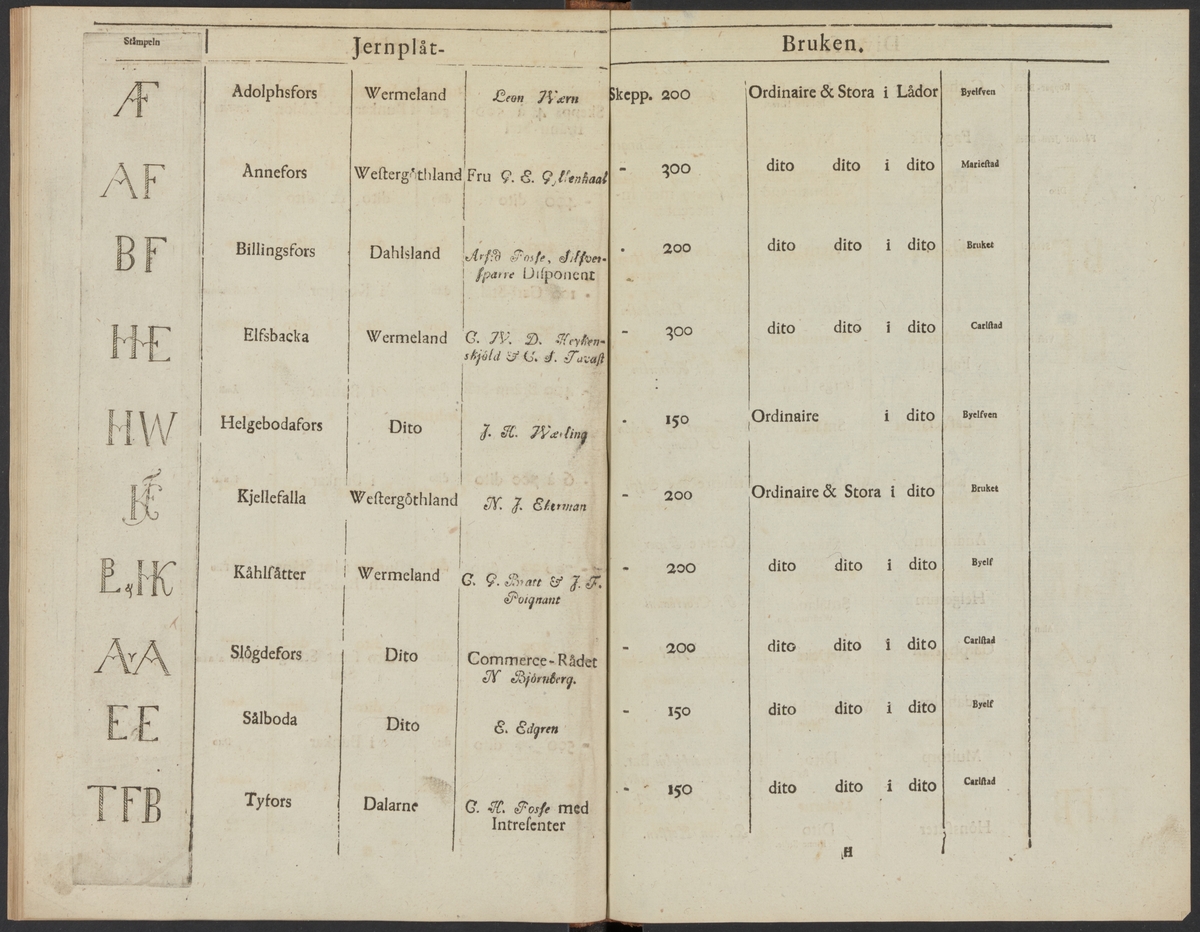 Stämpeln Jernplåt- Bruken.
AF Adolphsfors Wermeland Leon Wærn Skepp. 200 Ordinaire & Stora i Lådor Byelfven
AF Annefors Weſtergöthland Fru G. E. Gyllenhaal - 300 dito dito i dito Marieſtad
BF Billingsfors Dahlsland Arfid Posse, Silfver- - 200 dito dito i dito Bruket
sparre Diſponent
HE Elfsbacka Wermeland C. W. D. Heyken- - 300 dito dito i dito Carlſtad
skjöld & C. J. Tavaſt
HW Helgebodafors Dito J. H. Wærling - 150 Ordinaire i dito Byelfven
KF Kjellefalla Weſtergöthland N. J. Ekerman - 200 Ordinaire & Stora i dito Bruket
B & HK Kåhlſätter Wermeland C. G. Bratt & J. F. - 200 dito dito i dito Byelf
Poignant
AA Slögdefors Dito Commerce-Rådet - 200 dito dito i dito Carlſtad
N Björnberg.
EE Sålboda Dito E. Edgren - 150 dito dito i dito Byelf
TFB Tyfors Dalarne C. H. Posse med - 150 dito dito i dito Carlſtad
Intreſenter
H